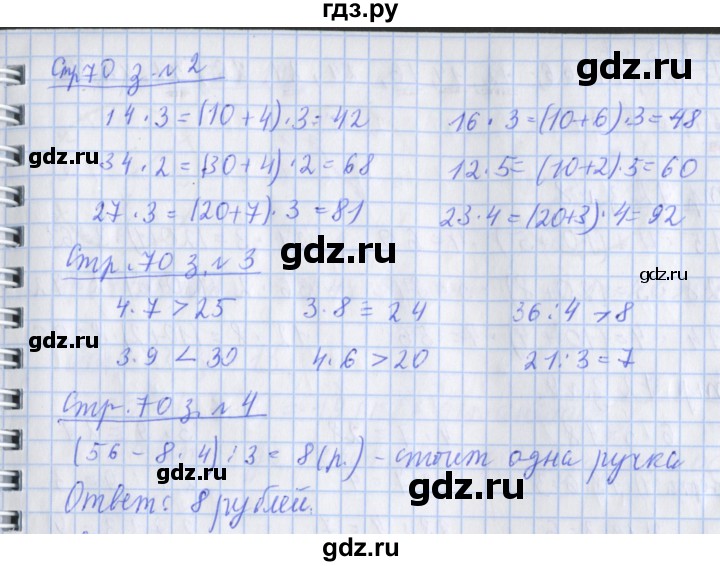 гдз.ру
Стр 70 з. № 2
14 · 3 = (10 + 4) · 3 = 42    16 · 3 = (10+6) · 3 = 48
34 · 2 = (30+4) · 2 = 68    12 · 5 = (10+2) · 5 = 60
27 · 3 = (20+7) · 3 = 81    23 · 4 = (20+3) · 4 = 92
Стр. 70 з. № 3
4 · 7 > 25    3 · 8 = 24    36 : 4 > 8
3 · 9 < 30    4 · 6 > 20    21 : 3 = 7
Стр. 70 з. № 4
(56 - 8 · 4) : 3 = 8 (р.) - стоит одна ручка
Ответ: 8 рублей.
gdz.ru
gdz.ru
gdz.ru
gdz.ru
gdz.ru
gdz.ru
gdz.ru
gdz.ru
gdz.ru